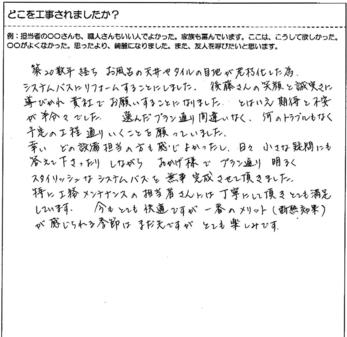 どこを工事されましたか？
例：担当者の〇〇さんも、職人さんもいい人でよかった。家族も喜んでいます。ここは、こうして欲しかった。
〇〇がよくなかった。思ったより、綺麗になりました。また、友人を呼びたいと思います。
築20数年経ち お風呂の天井やタイルの目地が老朽化した為、
システムバスにリフォームすることにしました。後藤さんの笑顔と誠実さに
導びかれ 貴社でお願いすることになりました。とはいえ期待と不安
が半分々でした。 選んだプラン通り間違いなく、何のトラブルもなく
予定の工程通りいくことを願っていました。
幸い どの設備担当の方も感じよかったし、日々 小さな疑問にも
答えて下さったり しながら おかげ様で プラン通り 明るく
スタイリッシュな システムバスを 無事 完成させて頂きました。
特に工務メンテナンスの担当者さんには丁寧にして頂きとても満足
しています。 今もとても快適ですが 一番のメリット(断熱効果)
が感じられる季節は まだ先ですが とても楽しみです。